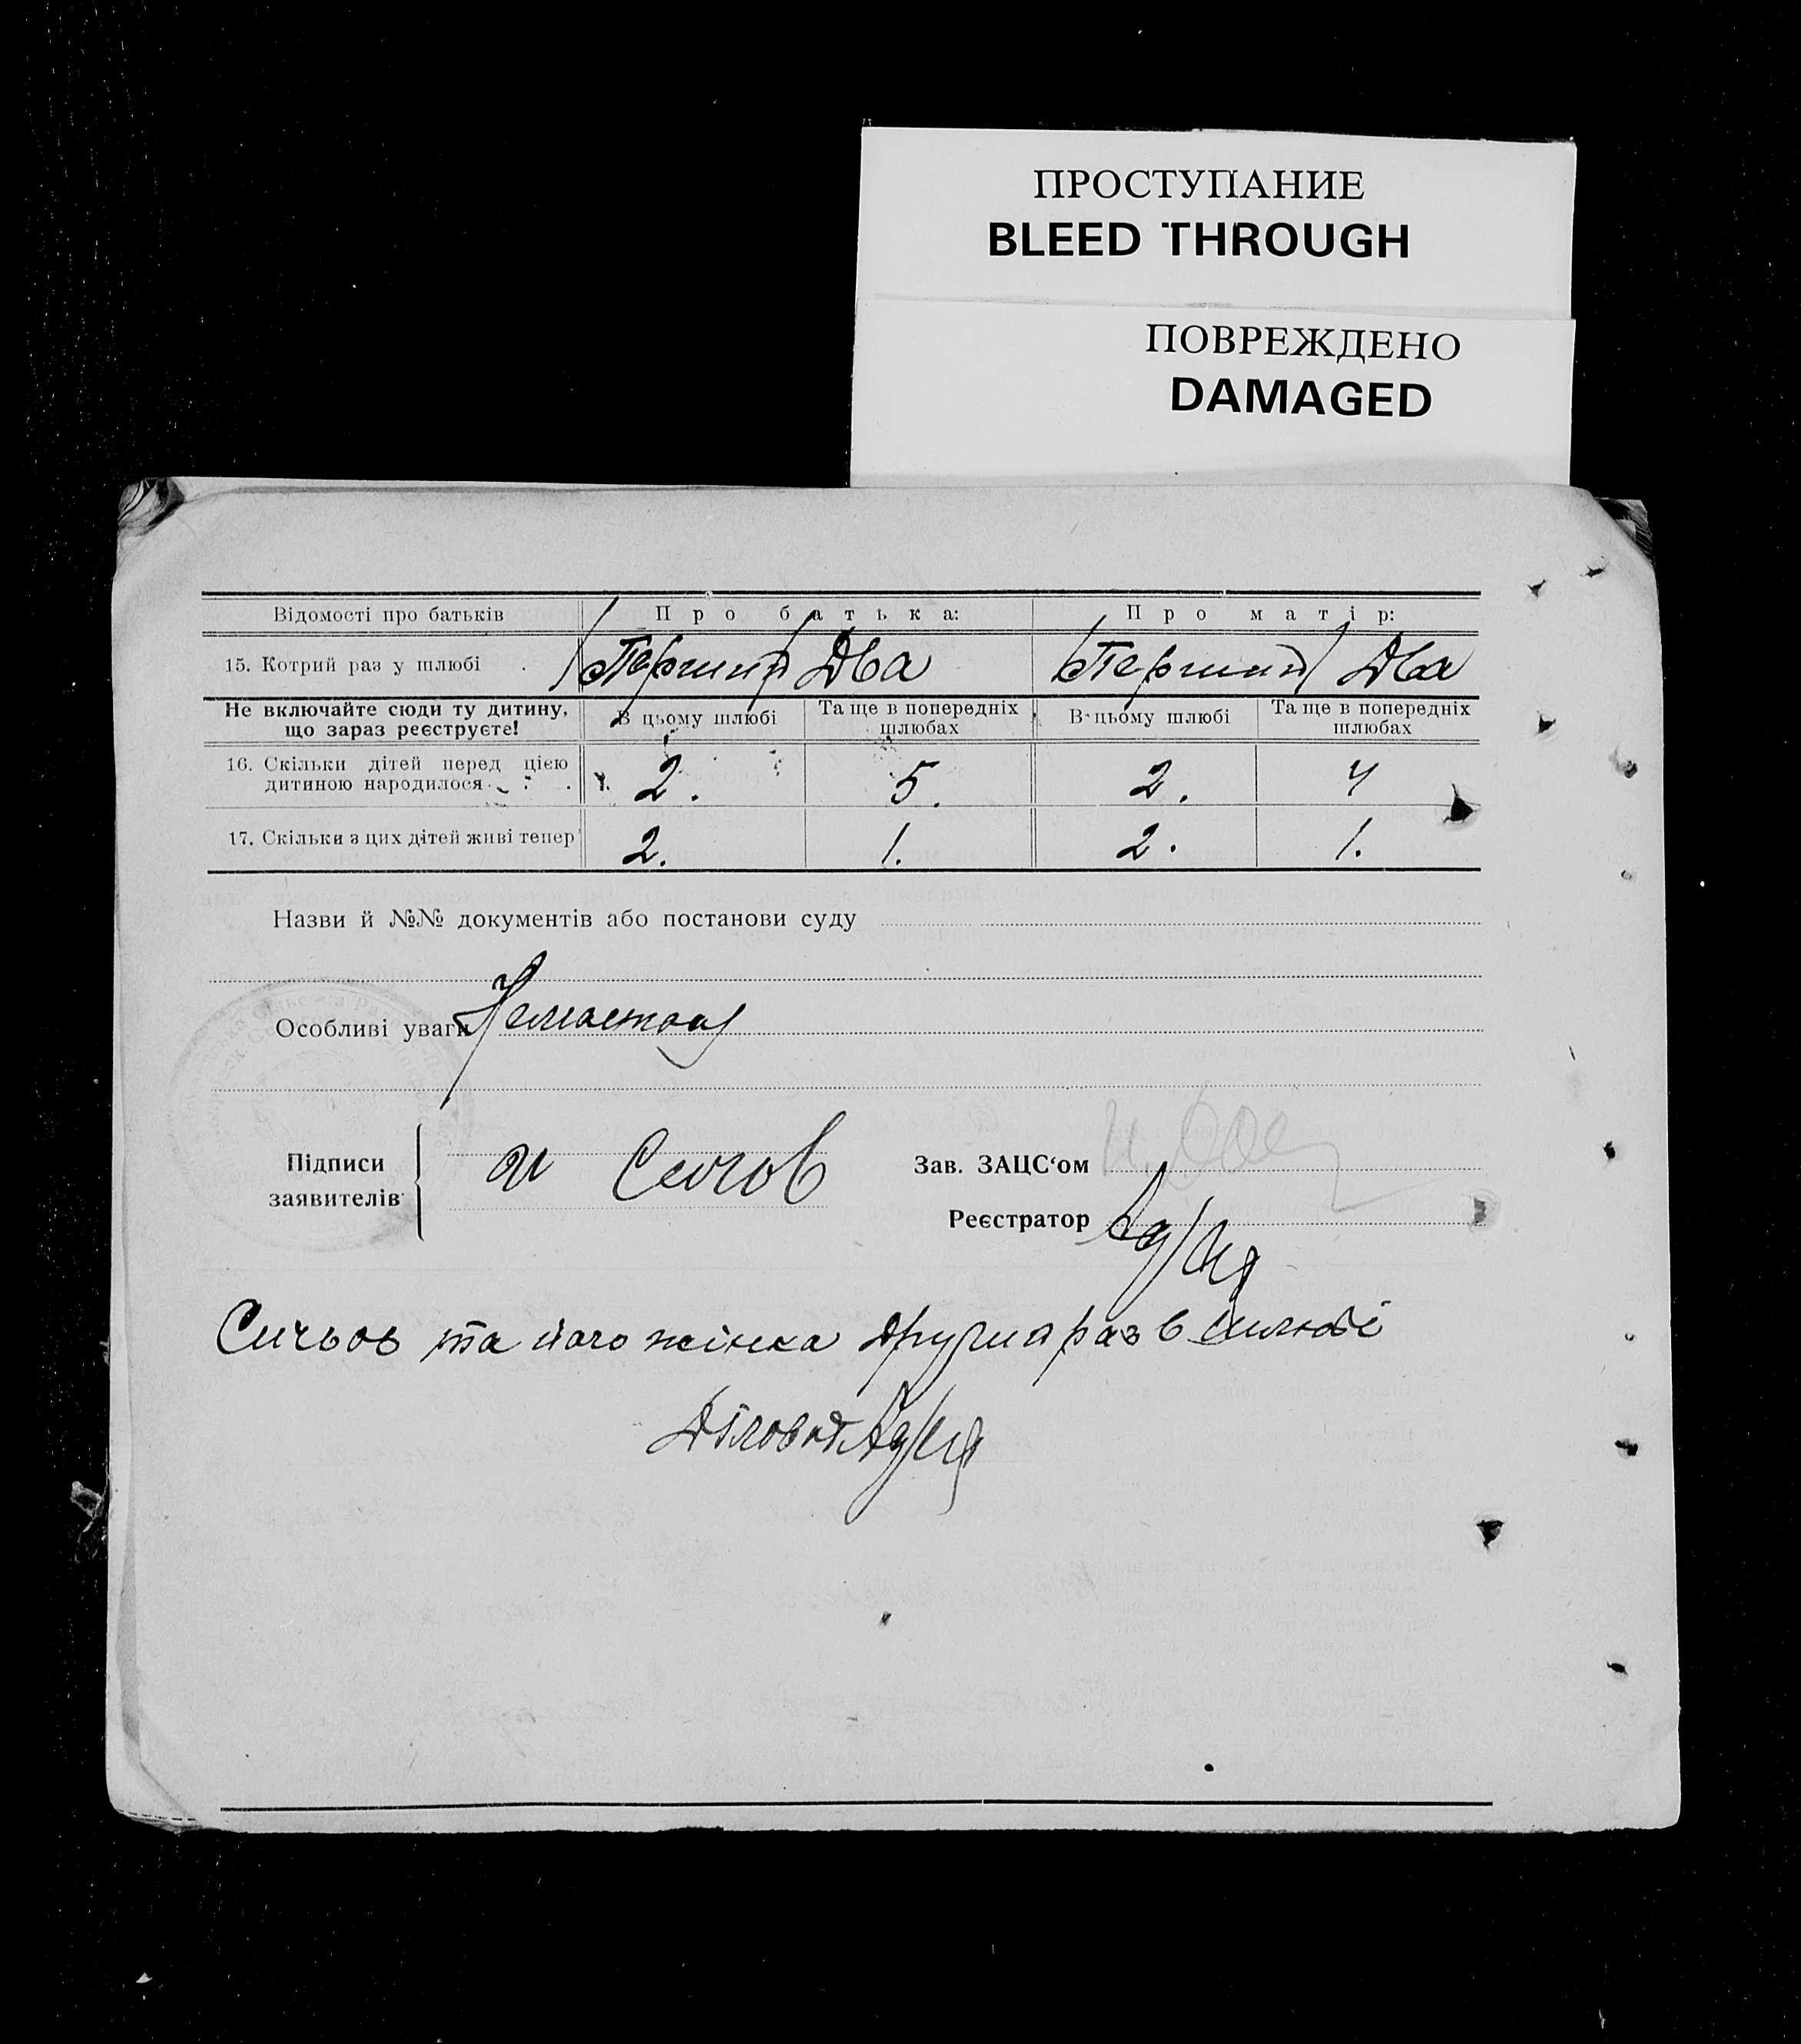 ПРОСТУПАНИЕ
BLEED THROUGH
ПОВРЕЖДЕНО
DAMAGED
Відомості про батьків Про батька: Про матір:
15. Котрий раз у шлюбі . (Перший) Два (Перший) Два
Не включайте сюди ту дитину, що зараз реєструєте! В цьому шлюбі Та ще в попередніх шлюбах В цьому шлюбі Та ще в попередніх шлюбах
16. Скільки дітей перед цією дитиною народилося 2. 5. 2. 4
17. Скільки з цих дітей живі тепер 2. 1. 2. 1.
Назви й №№ документів або постанови суду
Особливі уваги
Підписи заявителів
Зав. ЗАЦС‘ом
Реєстратор
Сичьов та його жінка другий раз в шлюбі
Діловод